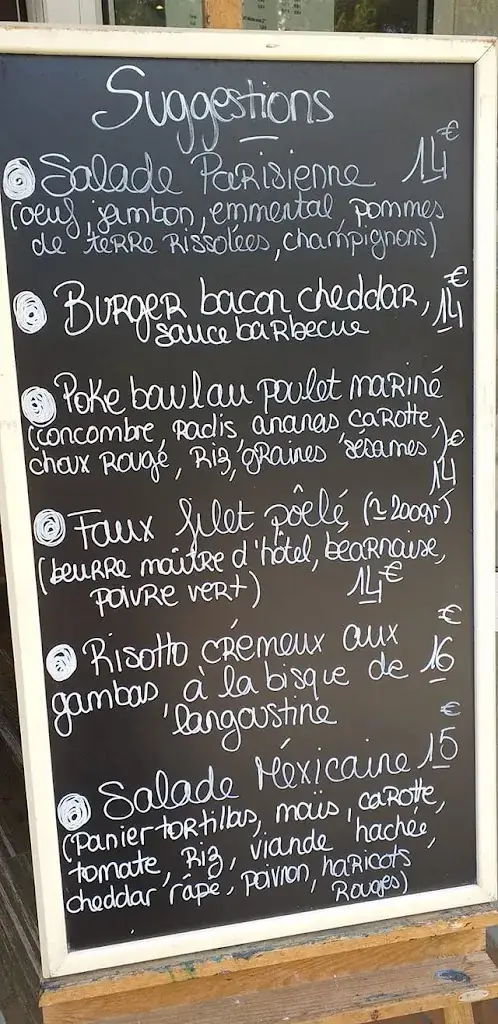 Suggestions
Salade Parisienne 14€
(oeuf, jambon, emmental, pommes
de terre rissolées, champignons)
Burger bacon cheddar, 14€
sauce barbecue
Poke bowl au poulet mariné
(concombre, radis, ananas, carotte,
choux rouge, riz, graines sésames) 14€
Faux filet pôêlé (≃ 200gr)
(beurre maître d'hôtel, béarnaise,
poivre vert) 14€
Risotto crémeux aux
gambas, à la bisque de 16€
langoustine
Salade Méxicaine 15€
(Panier tortillas, maïs, carotte,
tomate, riz, viande hachée,
cheddar râpe, poivron, haricots
rouges)